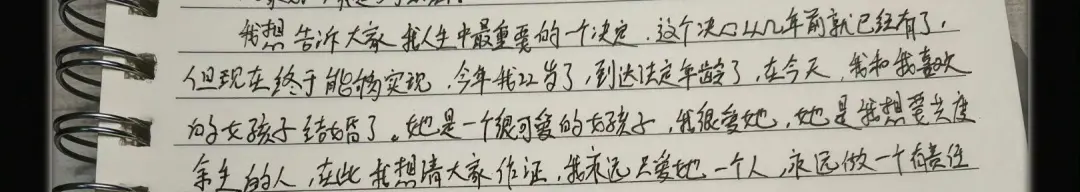 我想告诉大家我人生中最重要的一个决定,这个决心从几年前就已经有了,
但现在终于能够实现,今年我22岁了,到达法定年龄了,在今天,我和我喜欢
的女孩子结婚了。她是一个很可爱的女孩子,我很爱她,她是我想要共度
余生的人,在此我想请大家作证,我永远只爱她一个人,永远做一个有责任